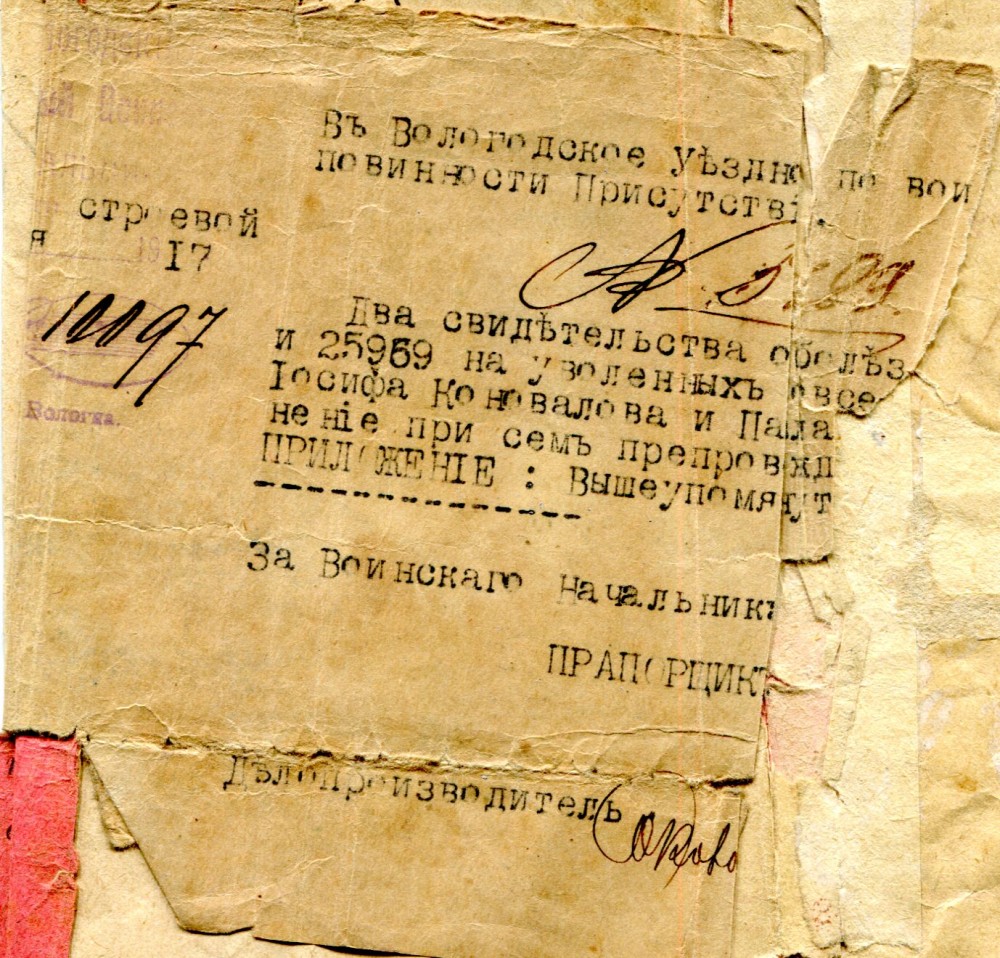 строевой
1917
10097
Вологда.
Въ Вологодское уѣздно по вои
повинности Присутстві.
Два свидѣтельства оболѣз
и 25969 на уволенныхъ овсе
Іосифа Коновалова и Пала
неніе при семъ препровжд
ПРИЛОЖЕНІЕ : Вышеупомянут
За Воинскаго Начальника
ПРАПОРЩИКЪ
Дѣлопроизводитель